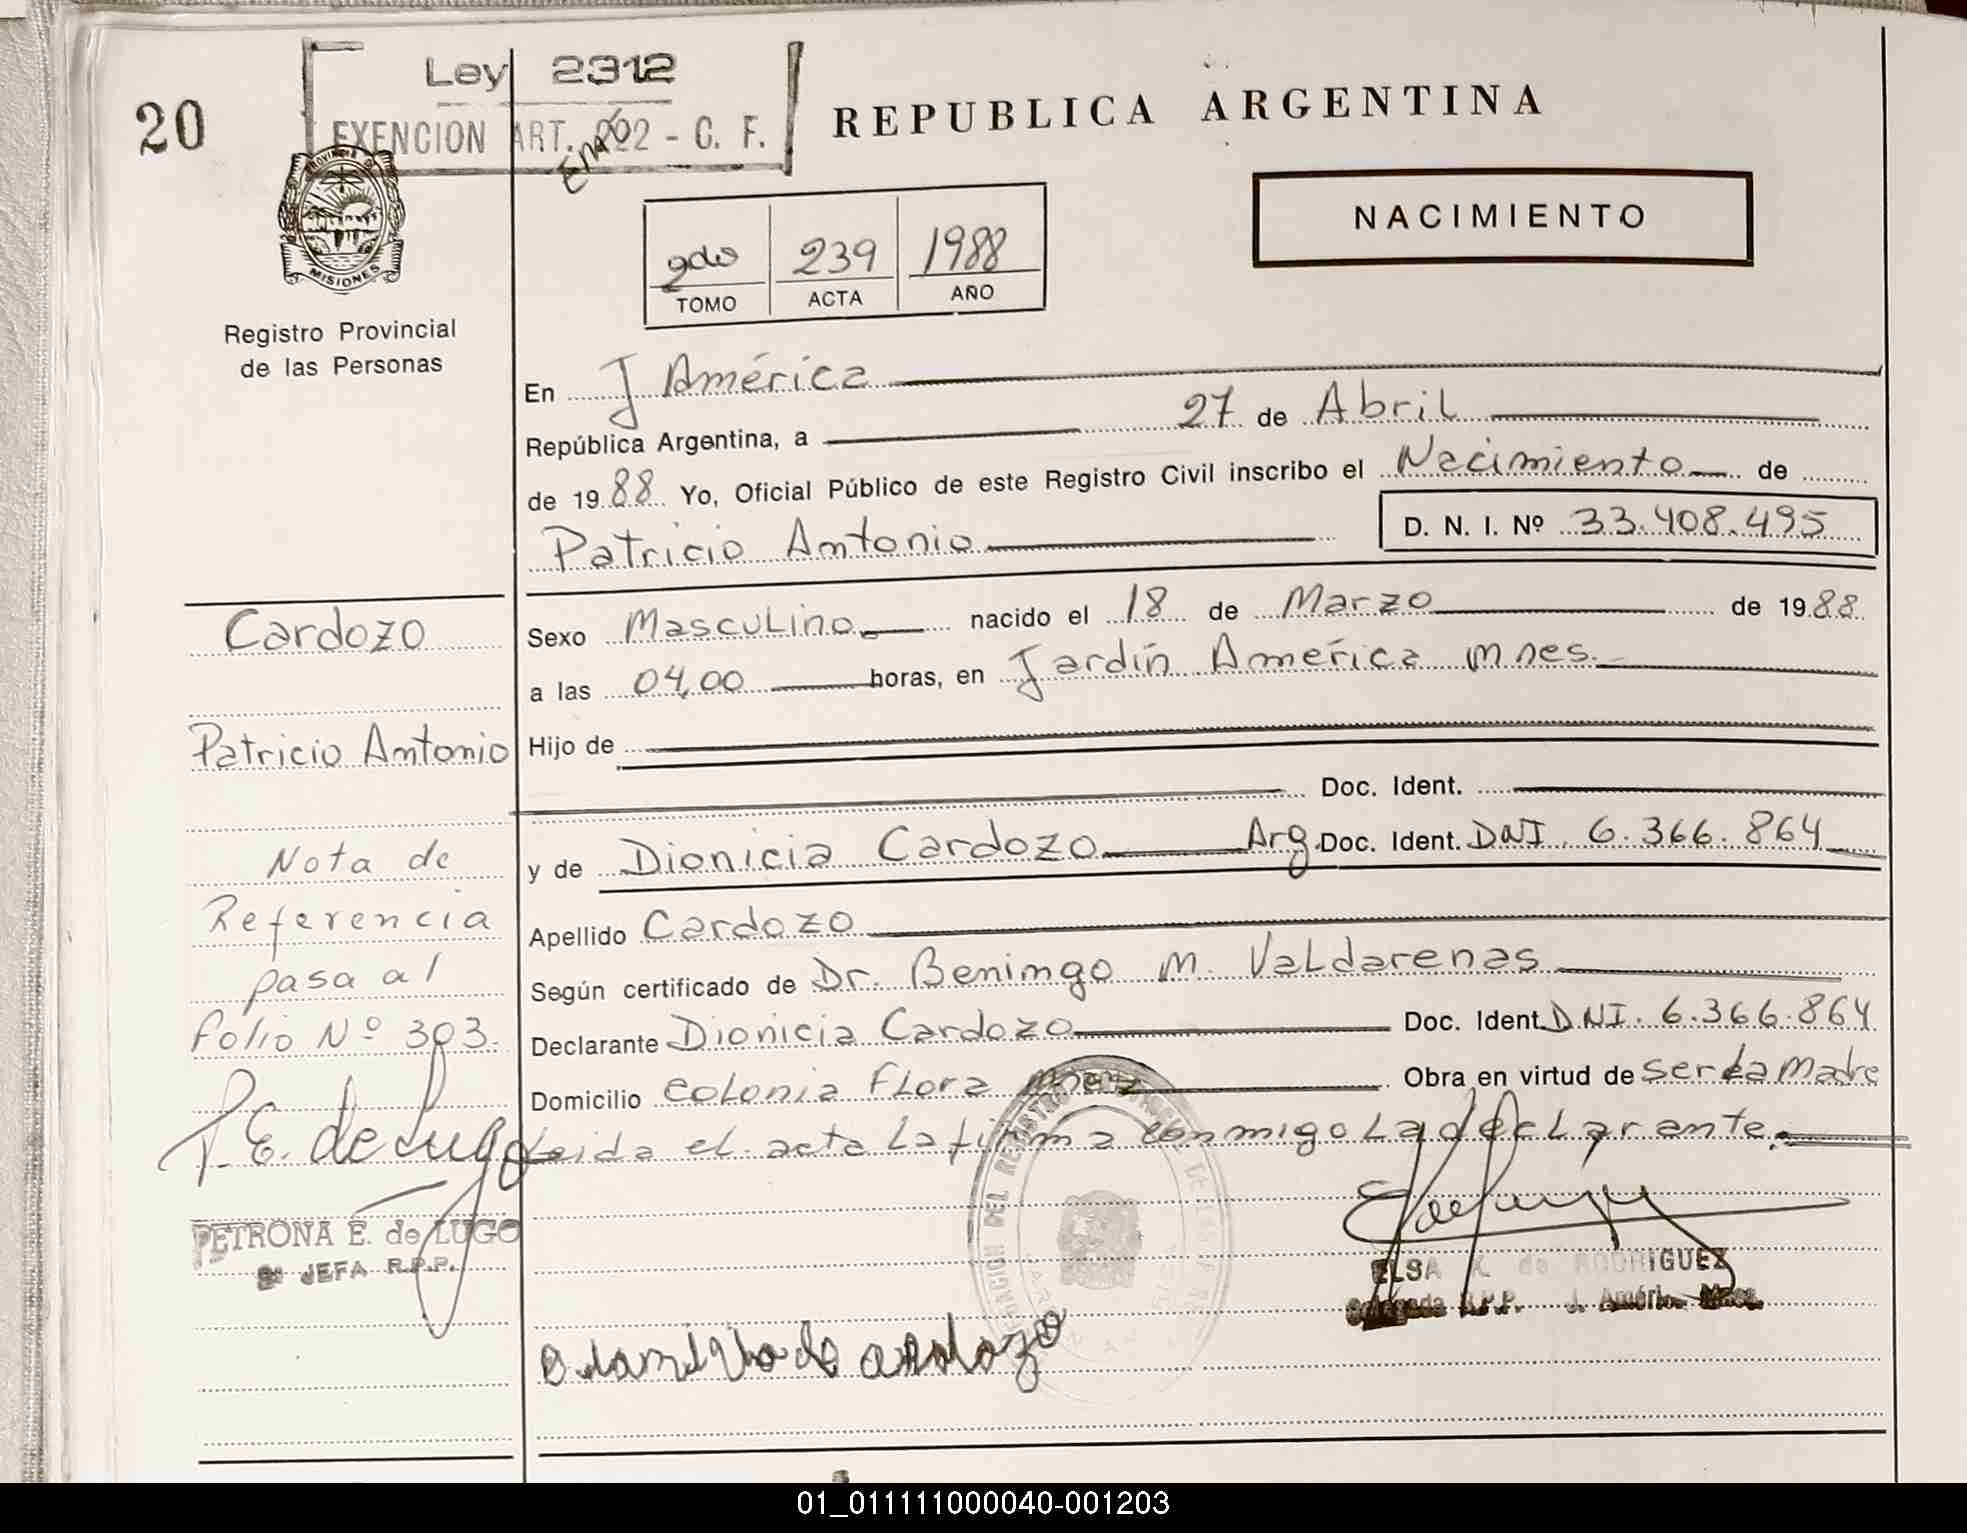 20
Ley 2312
EXENCION ART. 202 - C. F.
REPUBLICA ARGENTINA
PROVINCIA DE
MISIONES
Registro Provincial
de las Personas
2do 239 1988
TOMO ACTA AÑO
NACIMIENTO
En J América
República Argentina, a 27 de Abril
de 1988 Yo, Oficial Público de este Registro Civil inscribo el Nacimiento de
Patricio Antonio
D. N. I. Nº 33.408.495
Sexo Masculino nacido el 18 de Marzo de 1988
a las 04,00 horas, en Jardín América Mnes.
Hijo de
Doc. Ident.
y de Dionicia Cardozo Arg. Doc. Ident. DNI. 6.366.864
Apellido Cardozo
Según certificado de Dr. Benimgo M. Valdarenas
Declarante Dionicia Cardozo Doc. Ident DNI. 6.366.864
Domicilio Colonia Flora Mnes Obra en virtud de ser la Madre
Leida el acta la firma conmigo La declarante.
Cardozo
Patricio Antonio
Nota de
Referencia
pasa al
folio Nº 303.
P. E. de Lugo
PETRONA E. de LUGO
JEFA R.P.P.
ELSA de RODRIGUEZ
Delegada R.P.P. J. América Mnes.
01_011111000040-001203